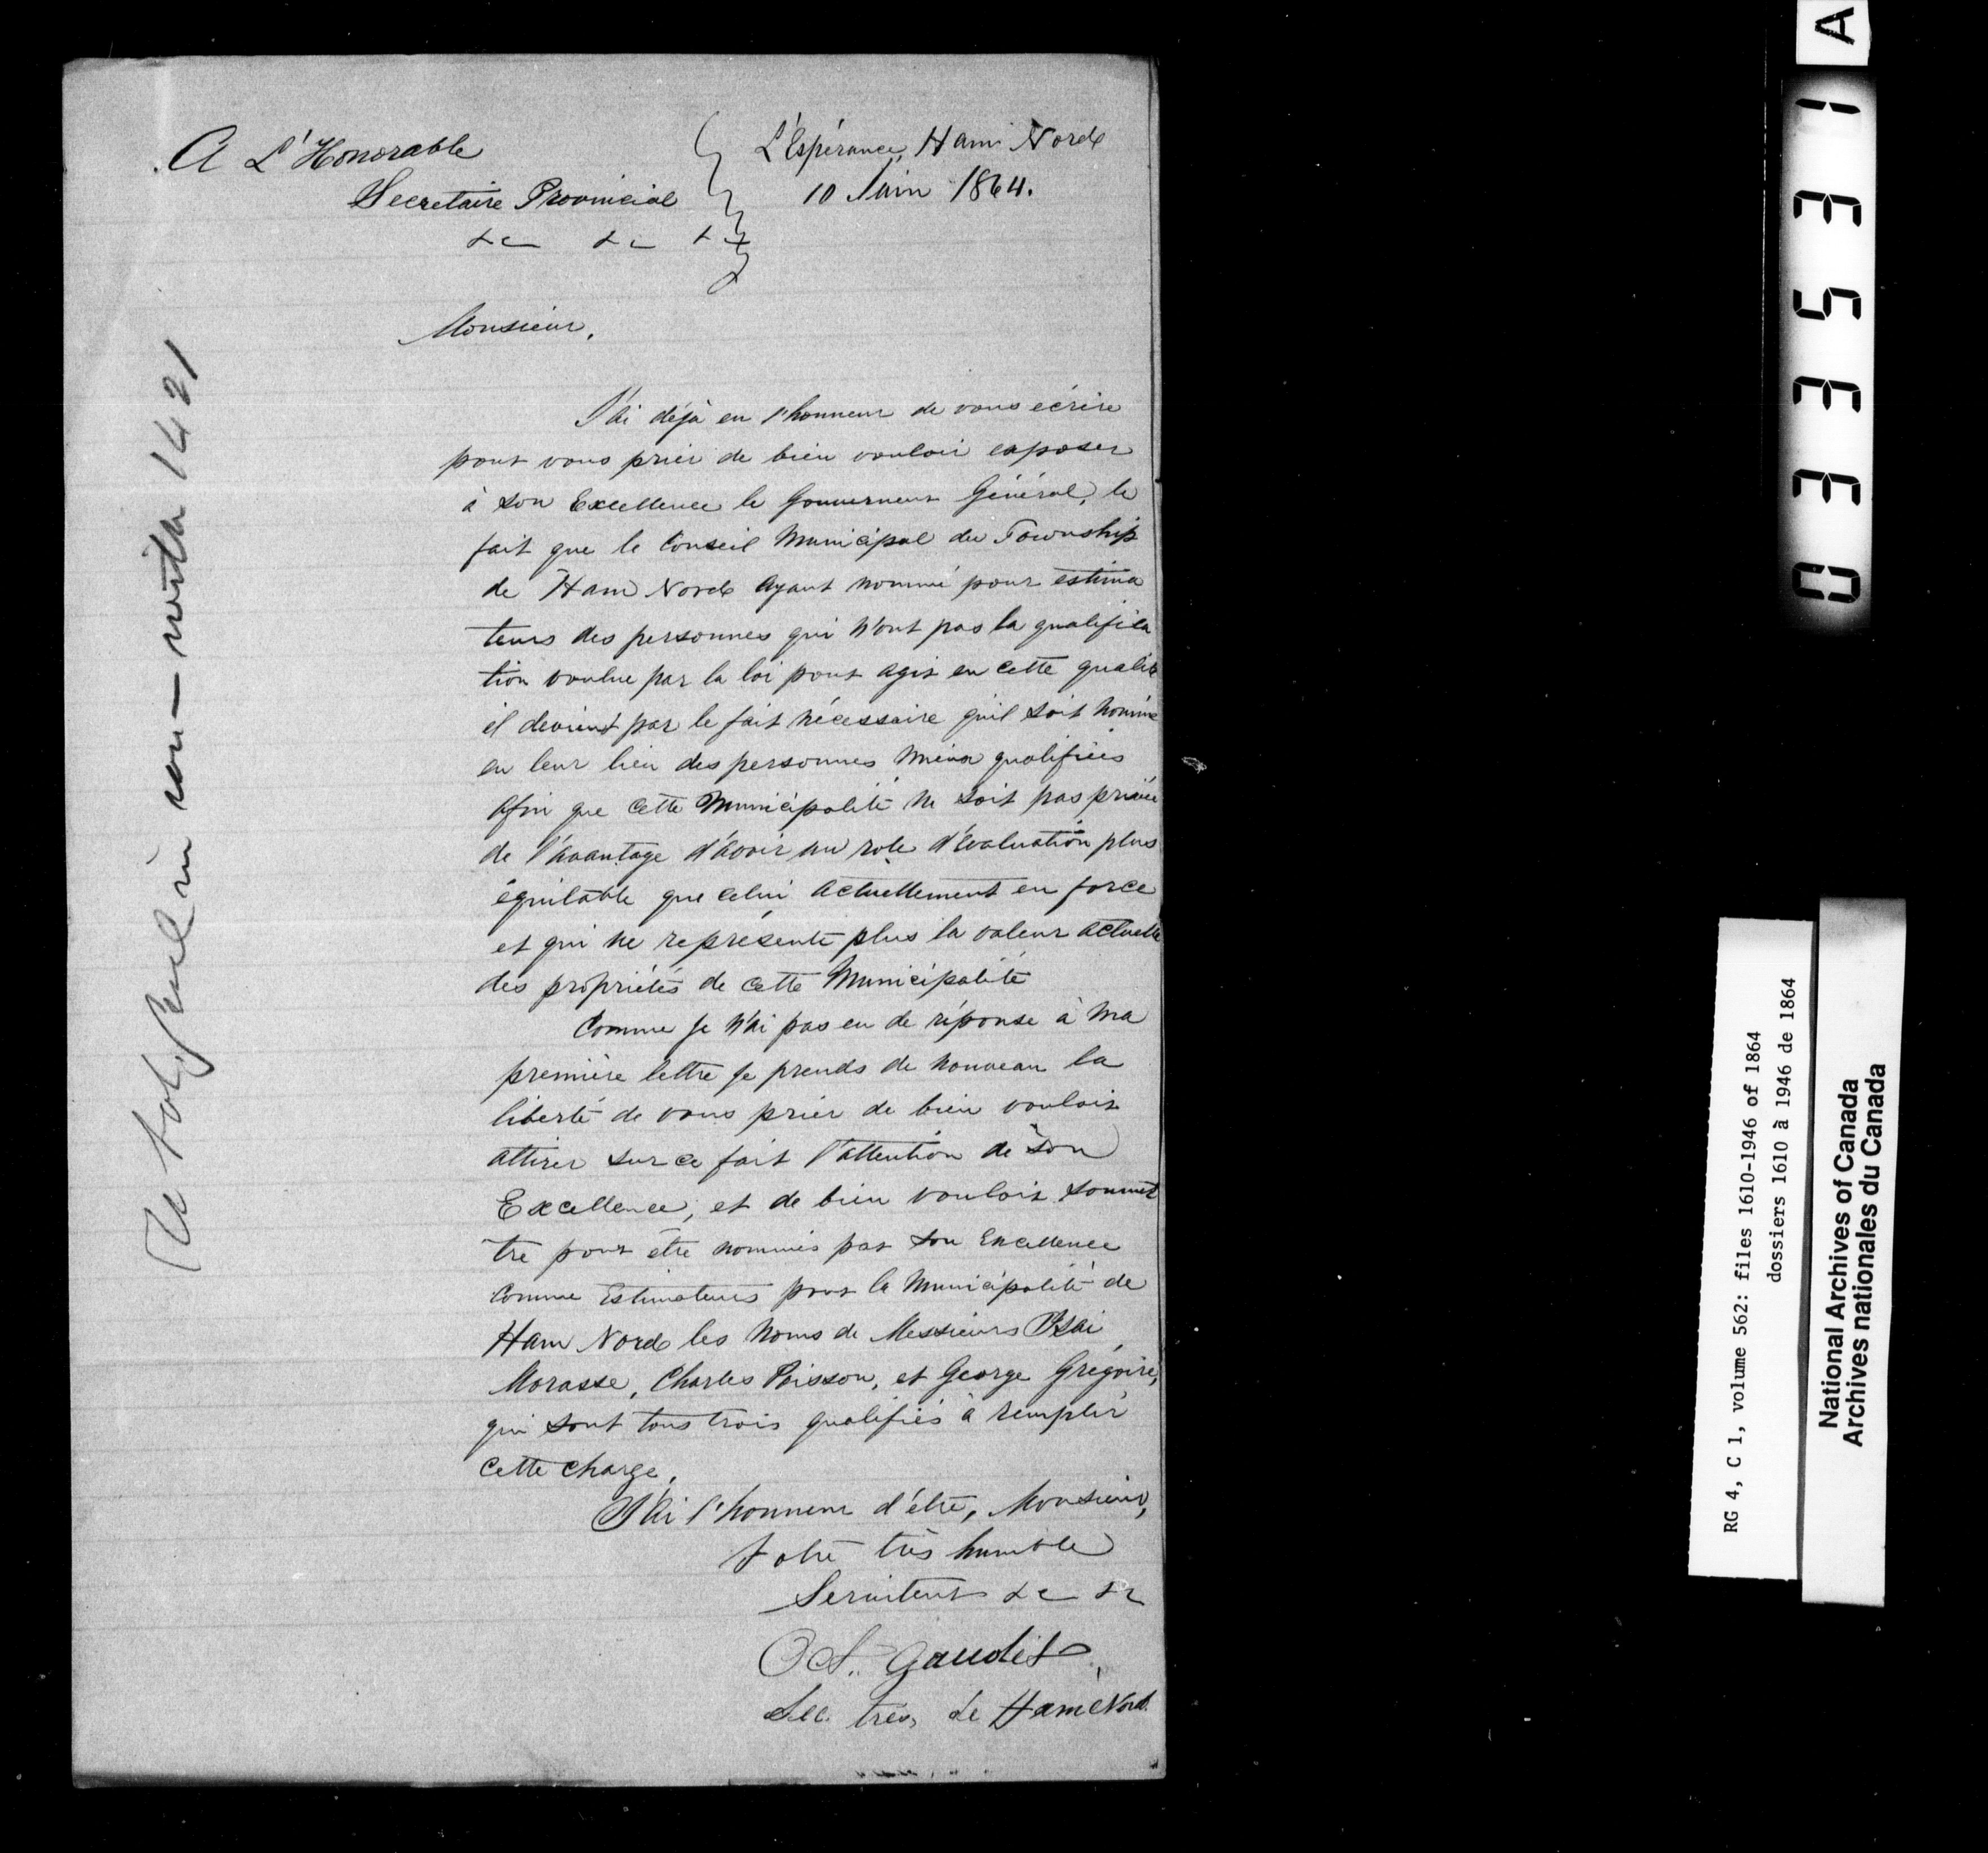 A L'Honorable
Secretaire Provincial
&c &c &c
L'Espérance, Ham Nord
10 Juin 1864.
Monsieur,
J'ai déjà eu l'honneur de vous écrire
pour vous prier de bien vouloir exposer
à Son Excellence le Gouverneur Général, le
fait que le Conseil Municipal du Township
de Ham Nord ayant nommé pour estima
teurs des personnes qui n'ont pas la qualifica
tion voulue par la loi pour agir en cette qualité
il devient par le fait nécessaire qu'il soit nommé
en leur lieu des personnes mieux qualifiées
afin que cette Municipalité ne soit pas privée
de l'avantage d'avoir un role d'évaluation plus
équitable que celui actuellement en force
et qui ne représente plus la valeur actuelle
des propriétés de cette Municipalité
Comme je n'ai pas eu de réponse à ma
première lettre je prends de nouveau la
liberté de vous prier de bien vouloir
attirer sur ce fait l'attention de Son
Excellence, et de bien vouloir soumet
tre pour être nommés par Son Excellence
comme Estimateurs pour la Municipalité de
Ham Nord les noms de Messieurs Isai
Morasse, Charles Poisson, et George Grégoire,
qui sont tous trois qualifiés à remplir
cette charge.
J'ai l'honneur d'être, Monsieur,
Votre très humble
Serviteur &c &c
Gaudet
Sec. trés. de Ham Nord.
with 1421
C 33531 A
RG 4, C 1, volume 562: files 1610-1946 of 1864
dossiers 1610 à 1946 de 1864
National Archives of Canada
Archives nationales du Canada